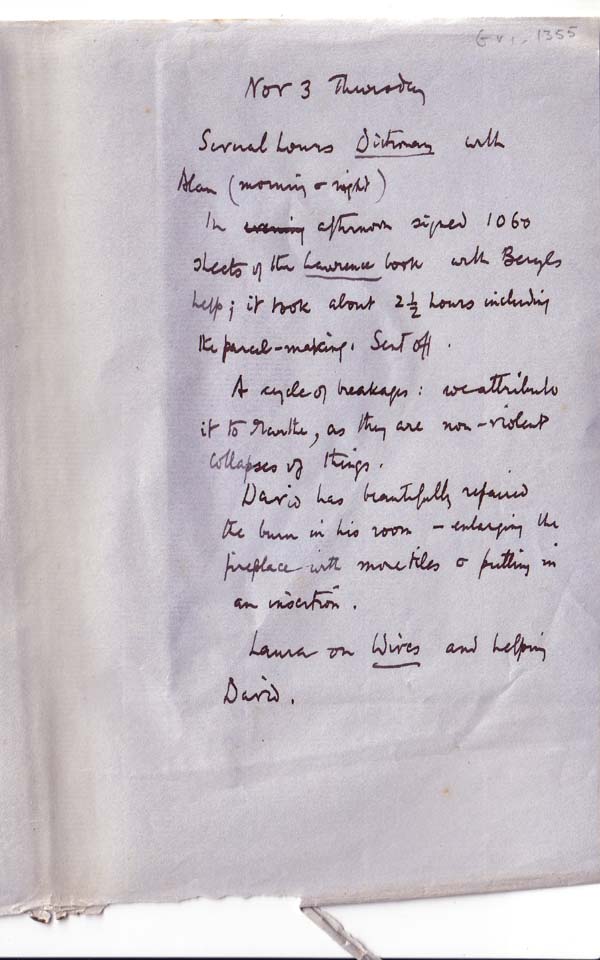 Gvi. 1355
Nov 3 Thursday
Several hours Dictionary with
Alan (morning & night)
In evening afternoon signed 1060
sheets of the Lawrence book with Beryls
help; it took about 2½ hours including
the parcel-making. Sent off.
A cycle of breakages: we attribute
it to, as they are non-violent
collapses of things.
David has beautifully repaired
the burn in his room – enlarging the
fireplace with more tiles & putting in
an insertion.
Laura on Wives and helping
David.